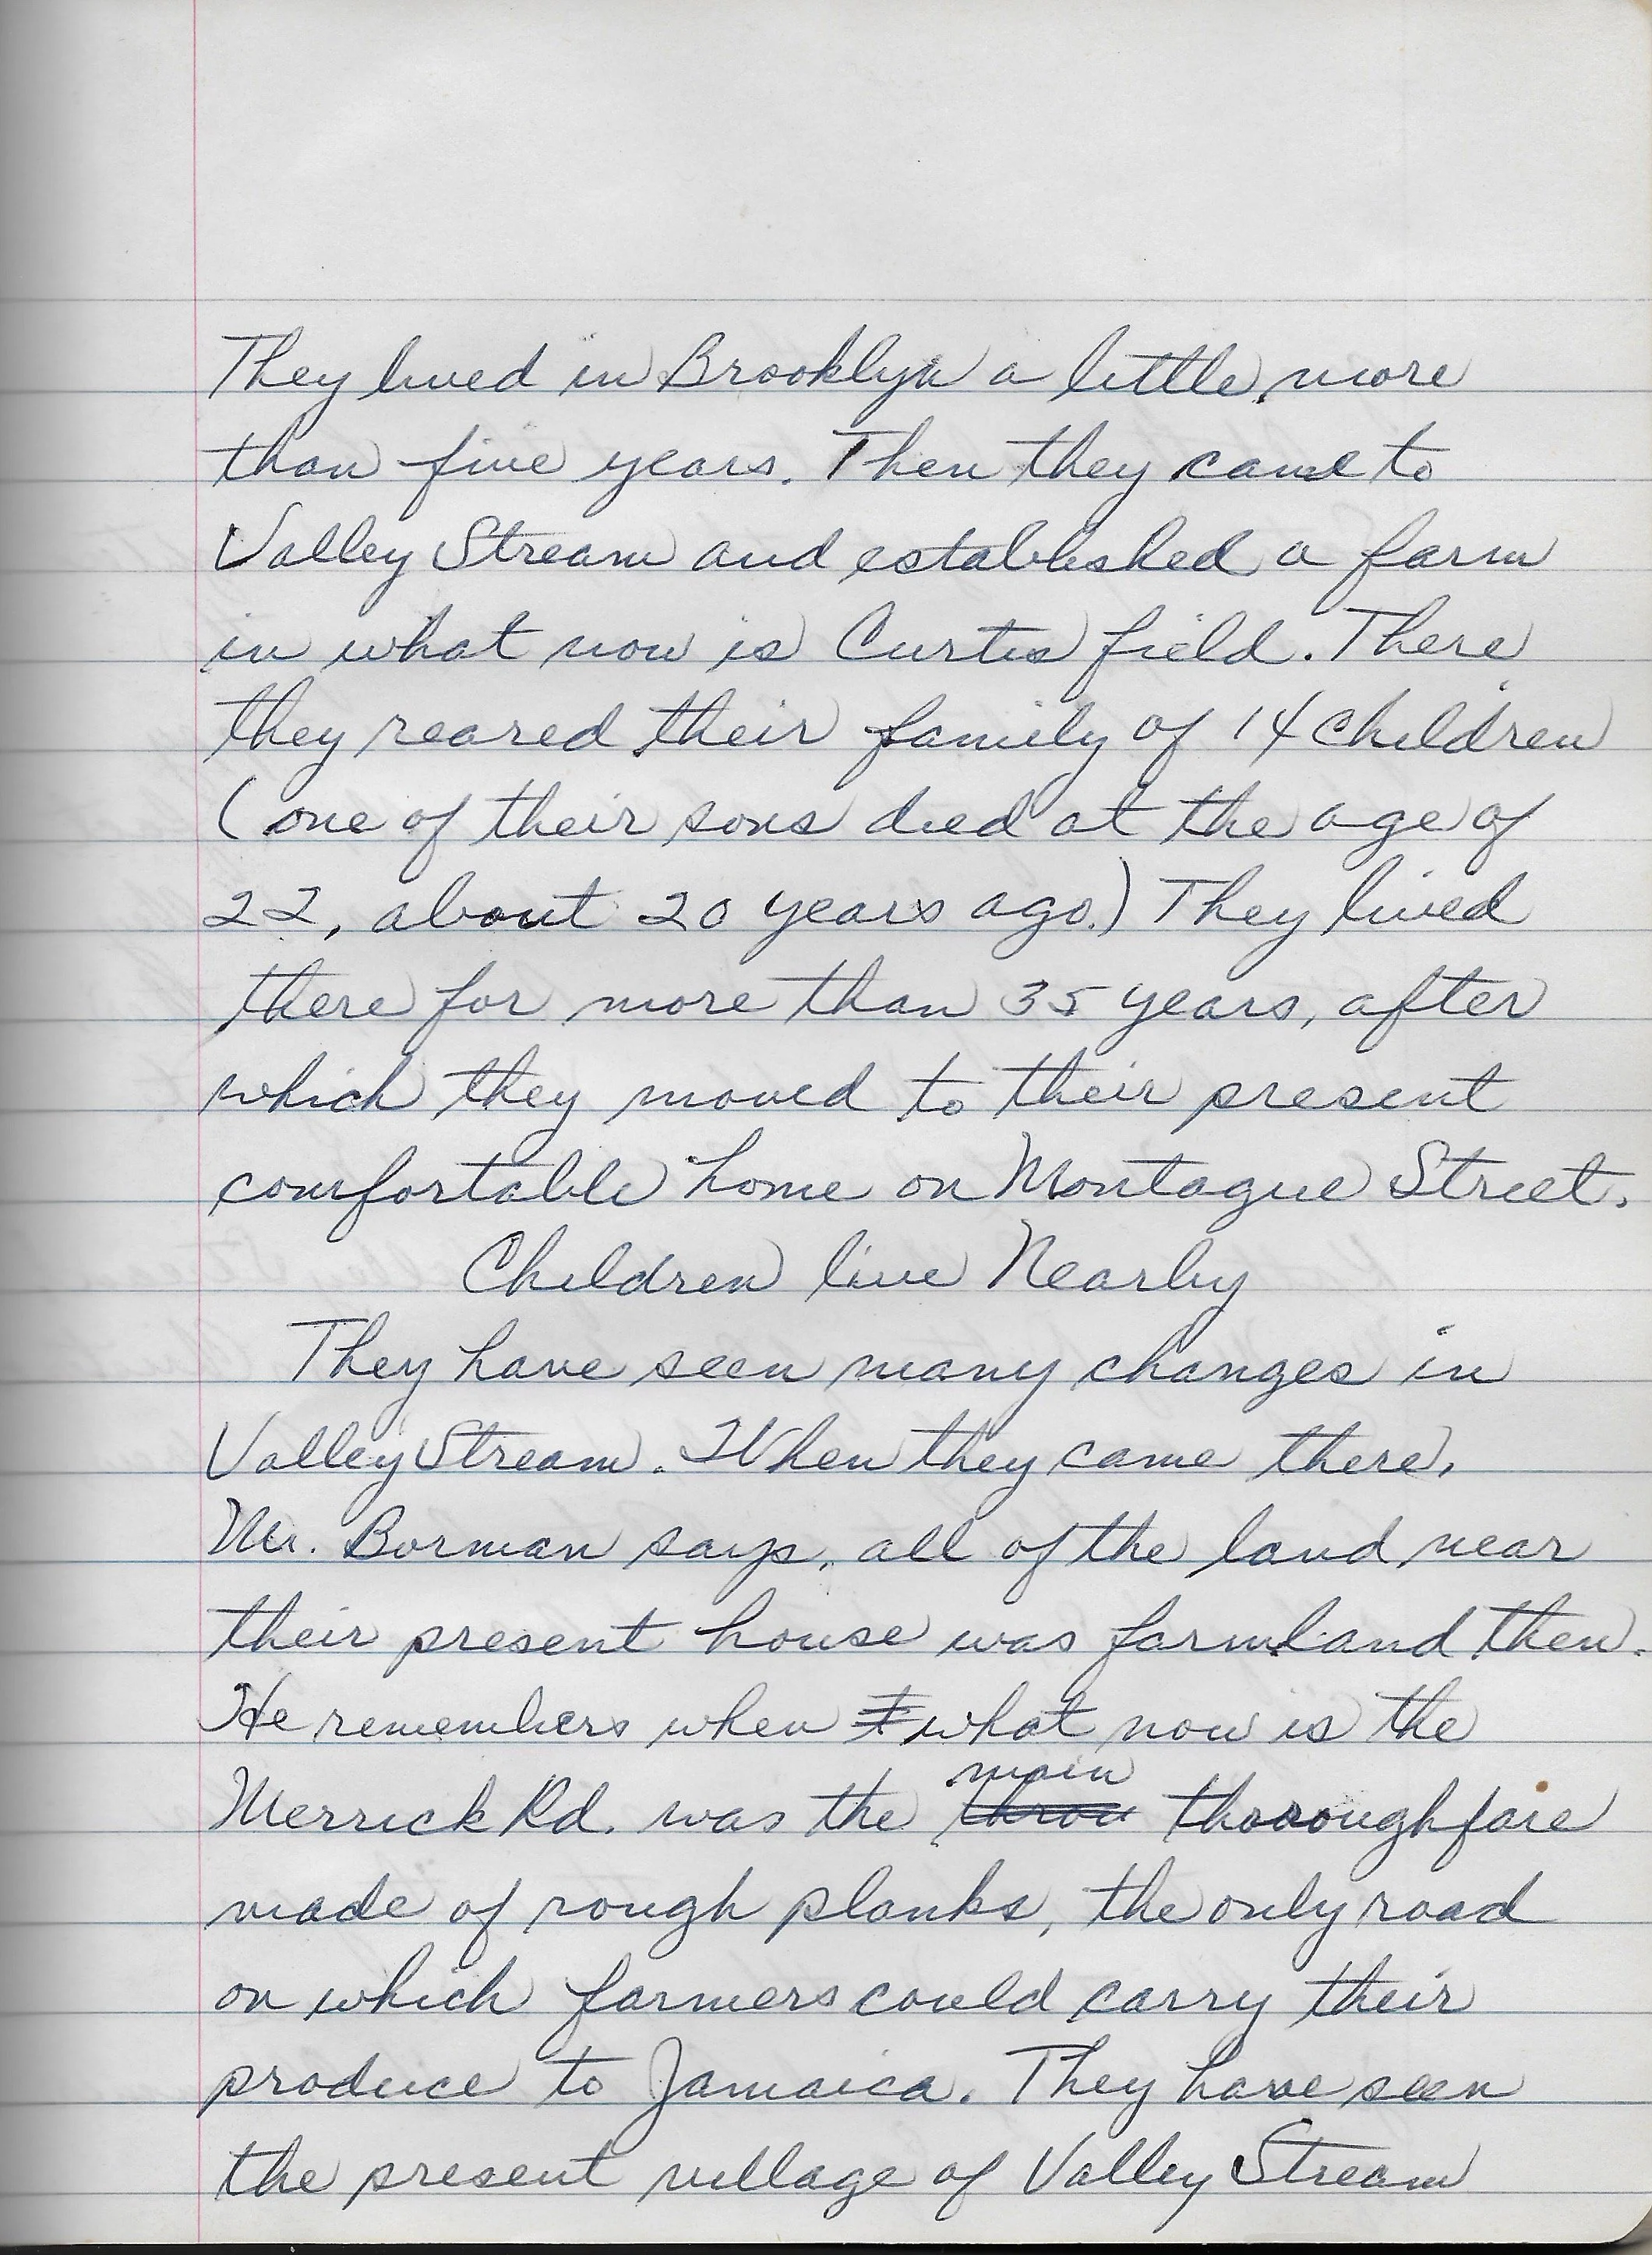 They lived in Brooklyn a little more
than five years. Then they came to
Valley Stream and established a farm
in what now is Curtis field. There
they reared their family of 14 children
(one of their sons died at the age of
22, about 20 years ago.) They lived
there for more than 35 years, after
which they moved to their present
comfortable home on Montague Street.
Children live Nearby
They have seen many changes in
Valley Stream. When they came there,
Mr. Borman says, all of the land near
their present house was farmland then.
He remembers when what now is the
Merrick Rd. was the main thoroughfare
made of rough planks, the only road
on which farmers could carry their
produce to Jamaica. They have seen
the present village of Valley Stream